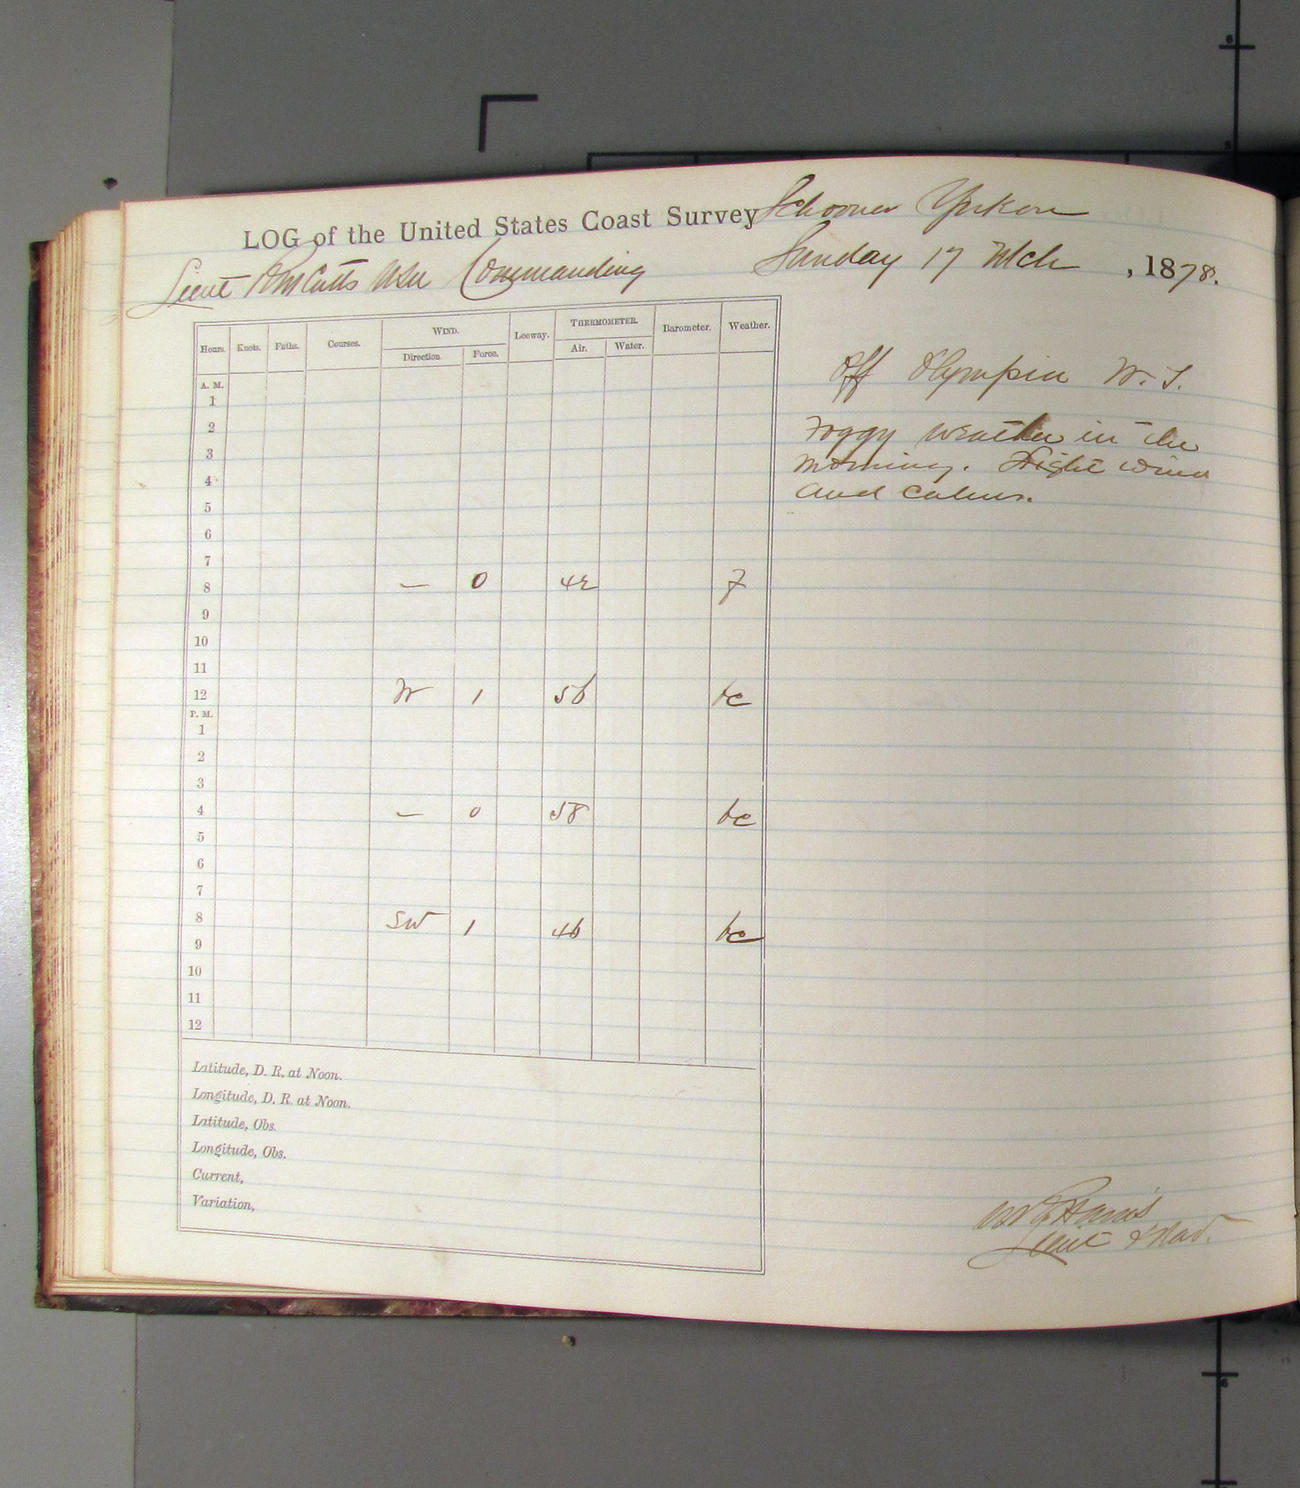 LOG of the United States Coast Survey Schooner Yukon
Lieut Commanding Sunday 17 Mch, 1878.
Hours. Knots. Faths. Courses. WIND. Leeway. THERMOMETER. Barometer. Weather.
Direction. Force. Air. Water.
A. M.
1
2
3
4
5
6
7
8 — 0 42 f
9
10
11
12 W 1 56 bc
P. M.
1
2
3
4 — 0 58 bc
5
6
7
8 SW 1 46 bc
9
10
11
12
Latitude, D. R. at Noon.
Longitude, D. R. at Noon.
Latitude, Obs.
Longitude, Obs.
Current,
Variation,
Off Olympia W. T.
Foggy weather in the
morning. Light wind
and calms.
Lieut
6
5
6